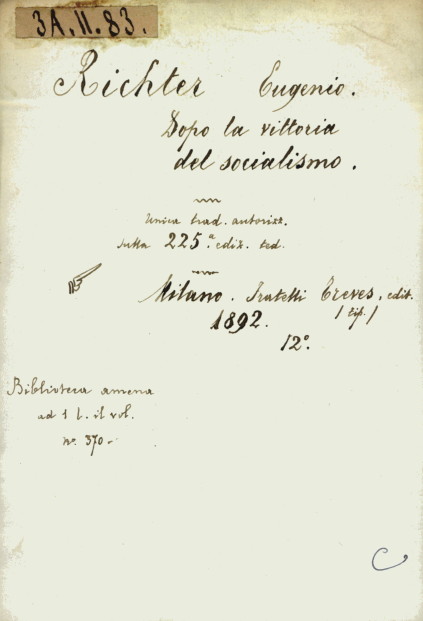 3A.II.83.
Richter Eugenio.
Dopo la vittoria
del socialismo.
Unica trad. autorizz.
sulla 225.a ediz. ted.
Milano. Fratelli Treves, edit.
1892. / tip. /
12°.
Biblioteca amena
ad 1 l. il vol.
n°. 370-
C